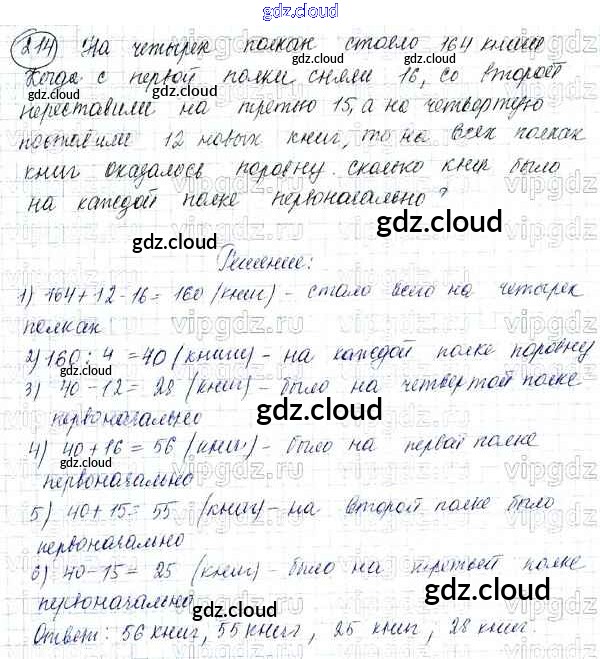 gdz.cloud
214) На четырех полках стояло 164 книги
Когда с первой полки сняли 16, со второй
переставили на третью 15, а на четвертую
поставили 12 новых книг, то на всех полках
книг оказалось поровну. Сколько книг было
на каждой полке первоначально?
Решение:
1) 164+12-16=160 (книг) - стало всего на четырех
полках
2) 160:4=40 (книги) - на каждой полке поровну
3) 40-12=28 (книг) - было на четвертой полке
первоначально
4) 40+16=56 (книг) - было на первой полке
первоначально
5) 40+15=55 (книг) - на второй полке было
первоначально
6) 40-15=25 (книг) - было на третьей полке
первоначально
Ответ: 56 книг, 55 книг, 25 книг, 28 книг.